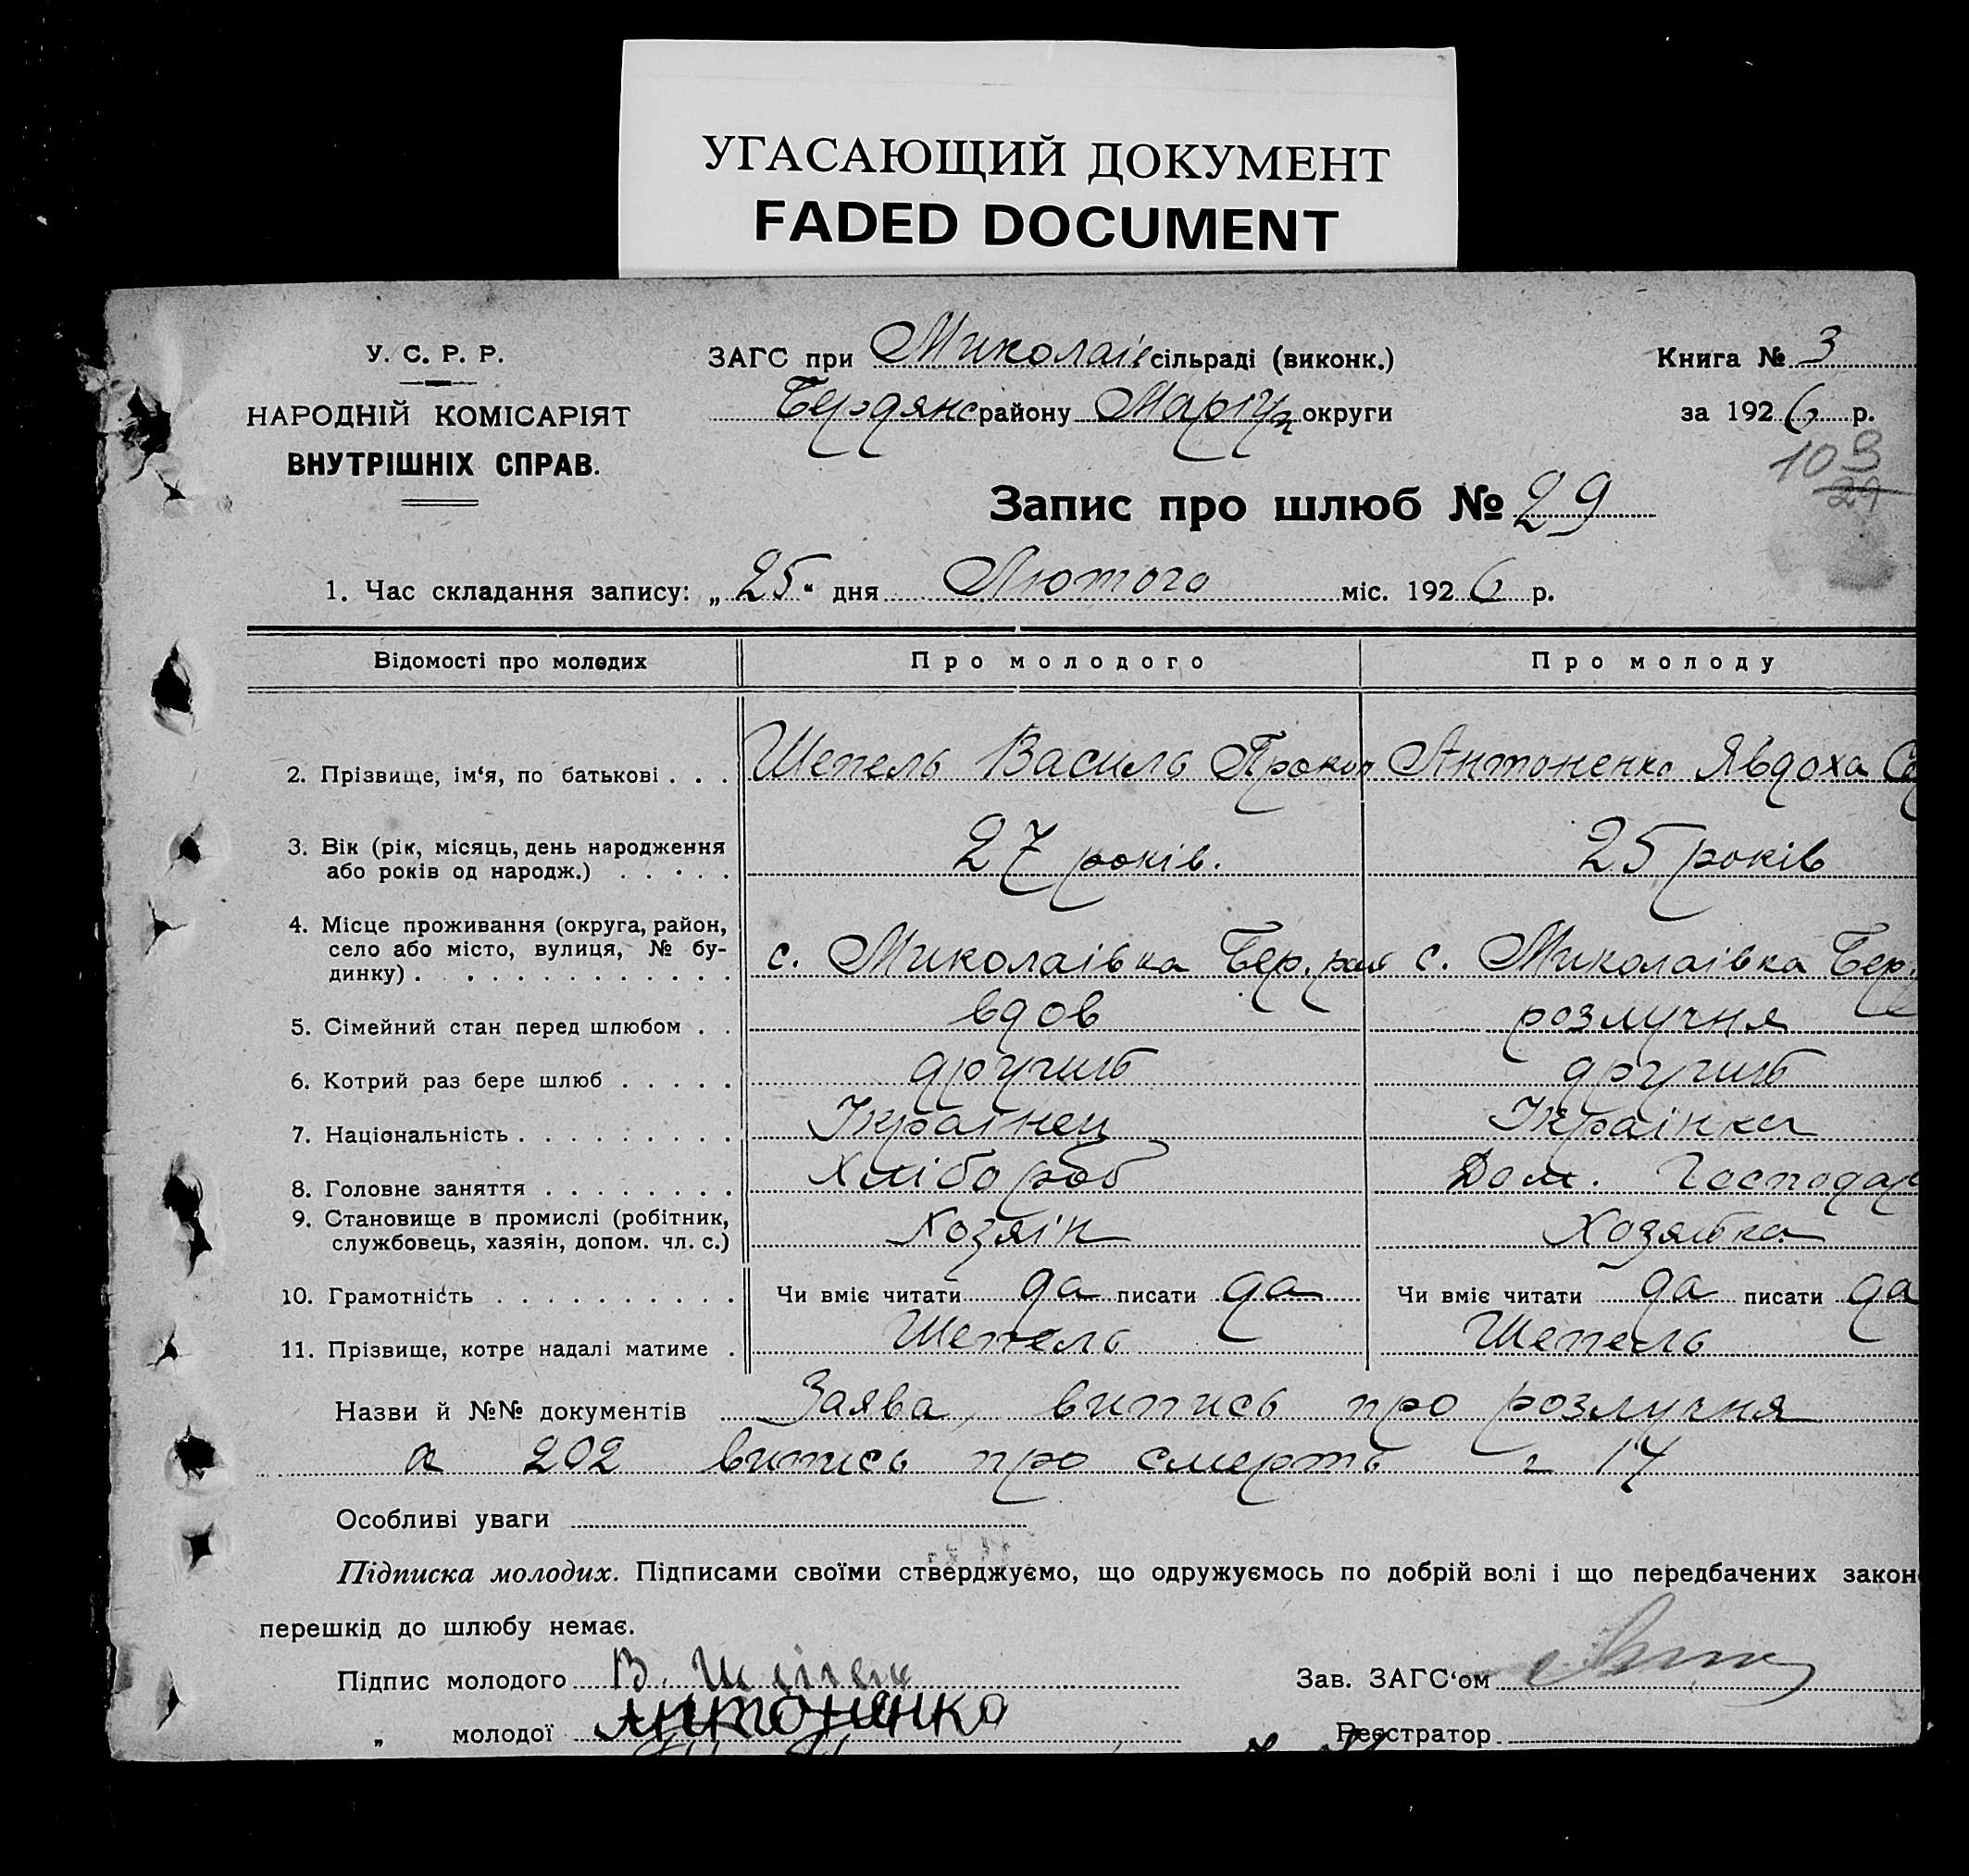 УГАСАЮЩИЙ ДОКУМЕНТ
FADED DOCUMENT
У. С. Р. Р.
НАРОДНІЙ КОМІСАРІЯТ
ВНУТРІШНІХ СПРАВ.
ЗАГС при Миколаів сільраді (виконк.)
Бердянс району Маріуп округи
Книга № 3
за 1926 р.
10 3
29
Запис про шлюб № 29
1. Час складання запису: „ 25 “ дня Лютого міс. 1926 р.
Відомості про молодих Про молодого Про молоду
2. Прізвище, ім‘я, по батькові . . . Шепель Василь Прокоп Антоненко Явдоха
3. Вік (рік, місяць, день народження
або років од народж.) . . . . . 27 років. 25 років
4. Місце проживання (округа, район,
село або місто, вулиця, № бу-
динку) . . . . . . . . . . . . с. Миколаівка Бер. рай с. Миколаівка Бер.
5. Сімейний стан перед шлюбом . . вдов розлучня
6. Котрий раз бере шлюб . . . . . другий другий
7. Національність . . . . . . . . . Украінец Украінка
8. Головне заняття . . . . . . . . Хлібороб Дом. Господар
9. Становище в промислі (робітник,
службовець, хазяін, допом. чл. с.) Хозяін Хозяйка
10. Грамотність . . . . . . . . . . Чи вміє читати да писати да Чи вміє читати да писати да
11. Прізвище, котре надалі матиме . Шепель Шепель
Назви й №№ документів Заява, випись про розлучня
202 випись про смерть 14
Особливі уваги
Підписка молодих. Підписами своїми стверджуємо, що одружуємось по добрій волі і що передбачених закон
перешкід до шлюбу немає.
Підпис молодого В. Шепель Зав. ЗАГС‘ом
„ молодої Антоненко Реєстратор